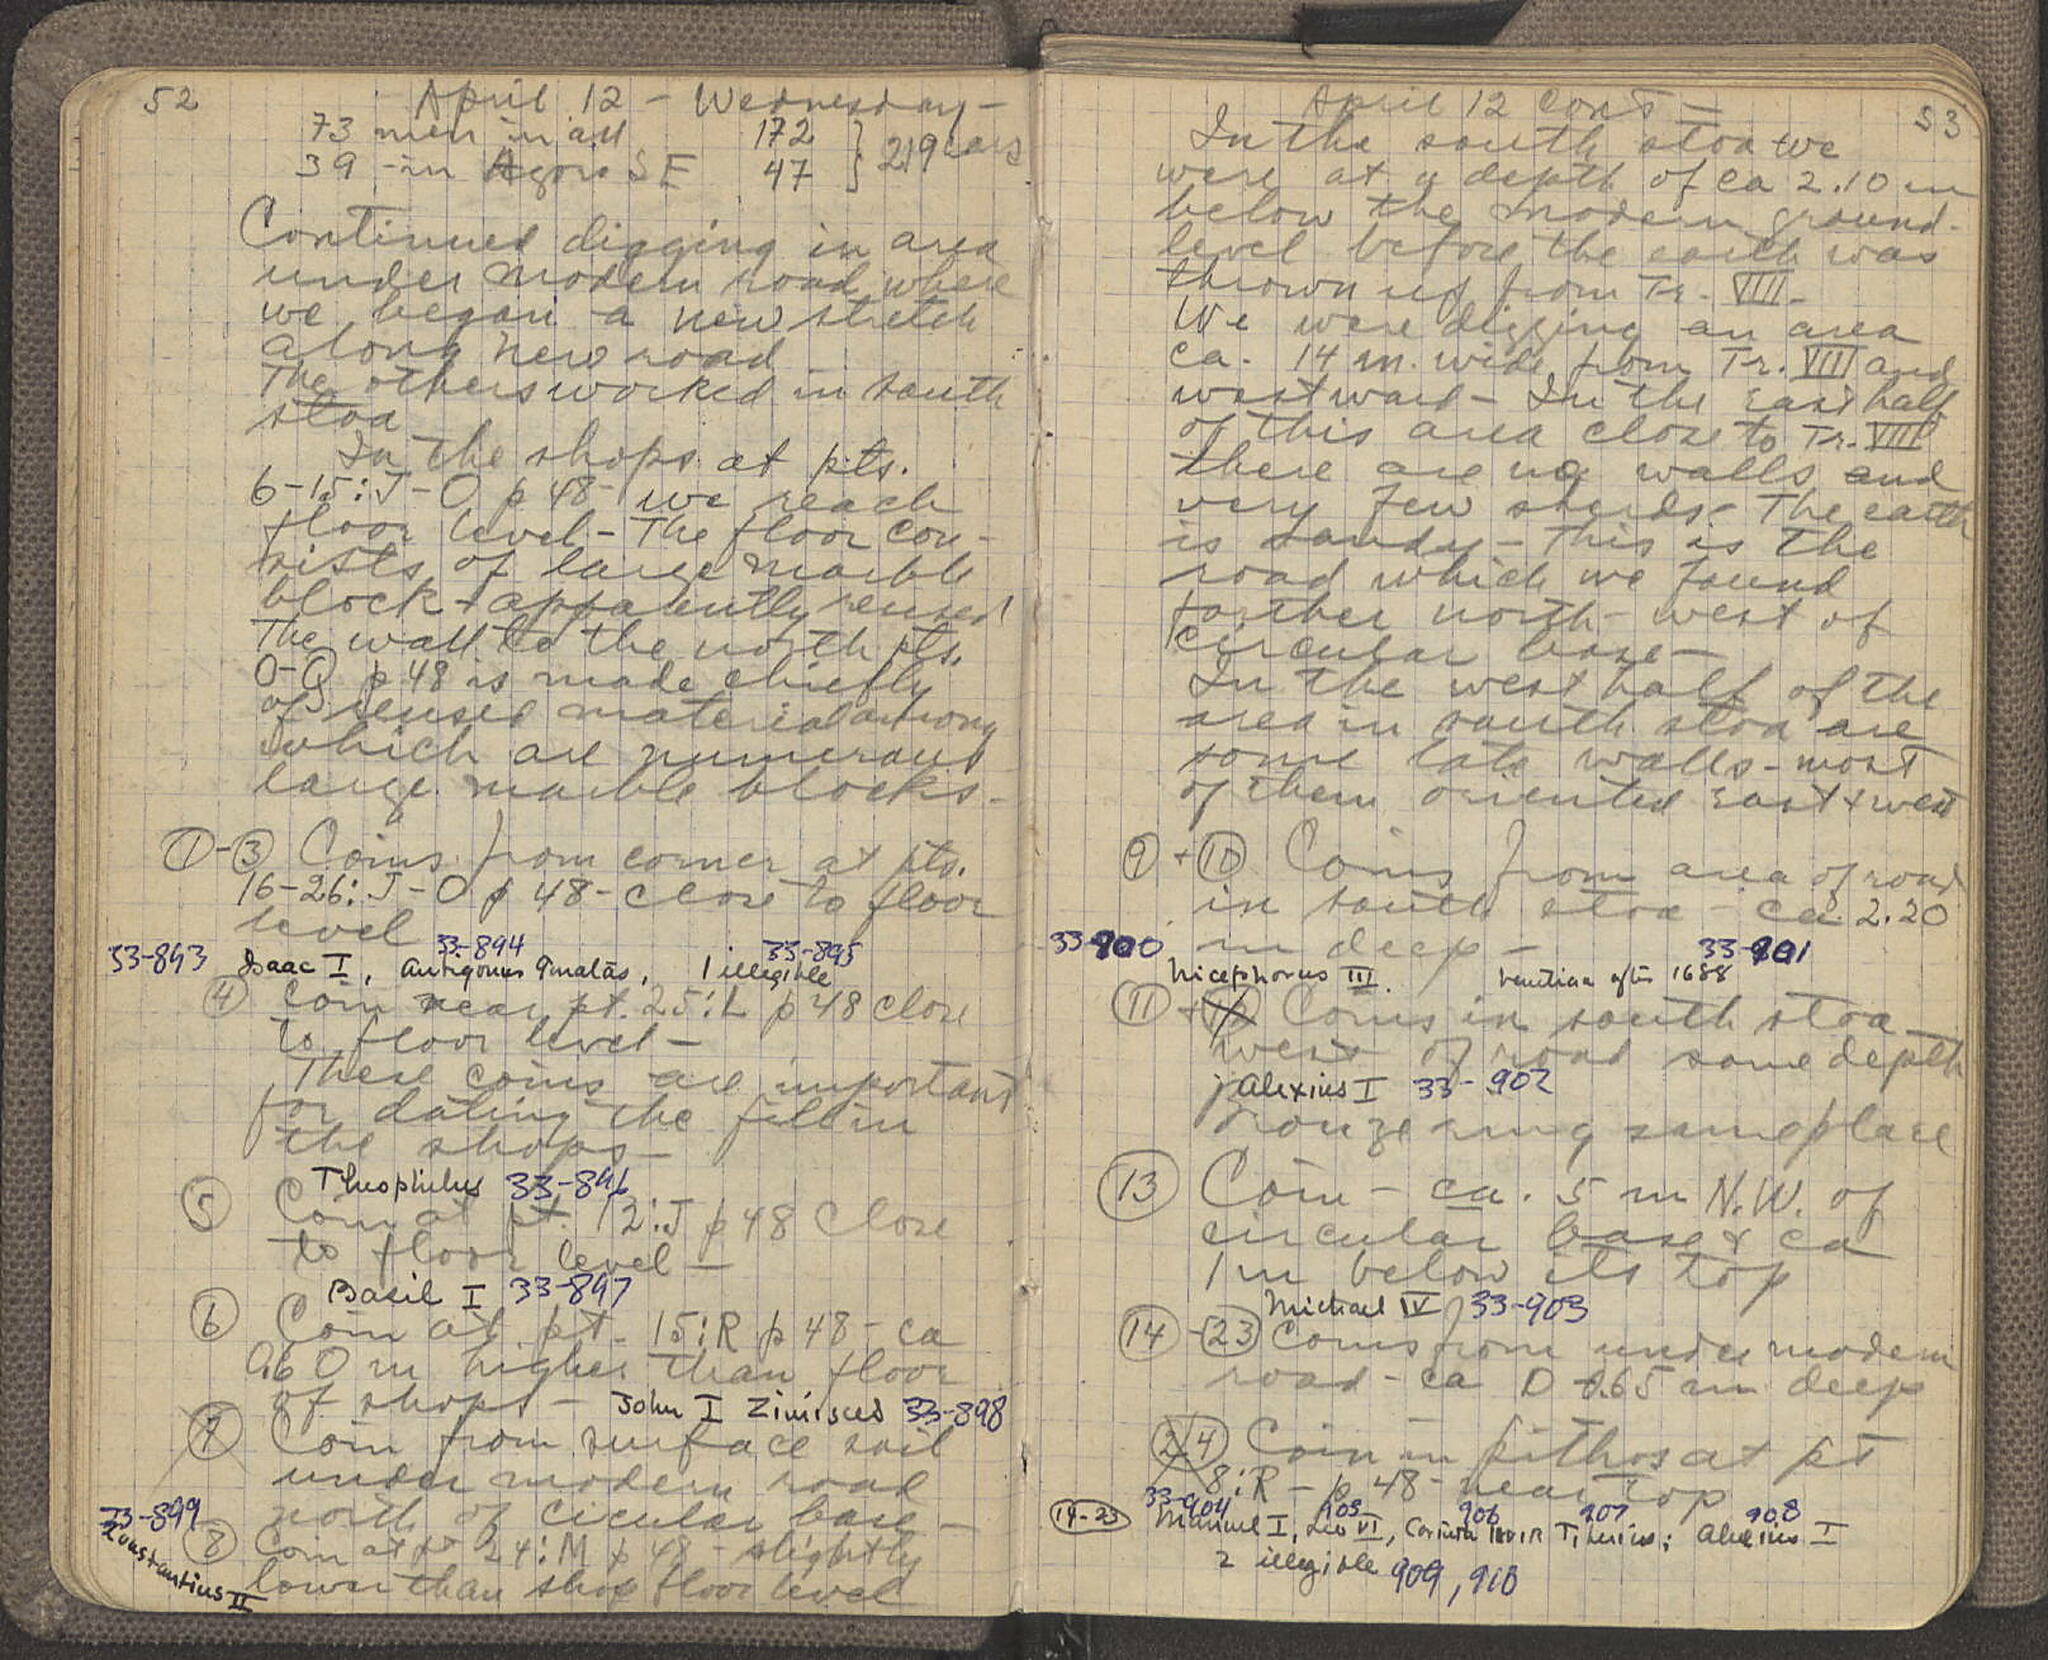 52
April 12 - Wednesday -
73 men in all 172
39 - in Agora SE 47 } 219 cars
Continued digging in area
under modern road where
we began a new stretch
along new road
The others worked in south
stoa
In the shops at pts.
6-15:J-O p 48 - we reach
floor level - The floor con-
sists of large marble
block + apparently reused
The wall to the north pts.
O-Q p 48 is made chiefly
of reused material among
which are numerous
large marble blocks -
①-③ Coins from corner at pts.
16-26:J-O p 48 - close to floor
level
33-893 33-894 33-895
Isaac I, Antigonus Gonatas, 1 illegible
④ Coin near pt. 25:L p 48 close
to floor level -
These coins are important
for dating the fill in
the shops -
Theophilus 33-896
⑤ Coin at pt. 12:J p 48 close
to floor level -
Basil I 33-897
⑥ Coin at pt. 15:R p 48 - ca
0.60 m higher than floor
of shops - John I Zimisces 33-898
⑦ Coin from surface soil
under modern road
north of circular base -
33-899
⑧ Coin at pt 24:M p 48 - slightly
lower than shop floor level
Constantius II
53
April 12 cont -
In the south stoa we
were at a depth of ca 2.10 m
below the modern ground-
level before the earth was
thrown up from Tr. VIII -
We were digging an area
ca. 14 m. wide from Tr. VIII and
westward - In the east half
of this area close to Tr. VIII
there are no walls and
very few sherds - The earth
is sandy - This is the
road which we found
farther north - west of
circular base -
In the west half of the
area in south stoa are
some late walls - most
of them oriented east + west
⑨ + ⑩ Coins from area of road
in south stoa - ca. 2.20
m deep -
33-900 33-901
Nicephorus III. Venetian after 1688
⑪ + ⑫ Coins in south stoa -
west of road same depth
Alexius I 33-902
Bronze ring same place
⑬ Coin - ca. 5 m N.W. of
circular base & ca
1 m below its top
Michael IV 33-903
⑭-㉓ Coins from under modern
road - ca 0.65 m deep
㉔ Coin in pithos at pt
8:R - p 48 - near top
33-904 905 906 907 908
14-23 Manuel I, Leo VI, Corinth IIVIR Tiberius; Alexius I
2 illegible 909, 910